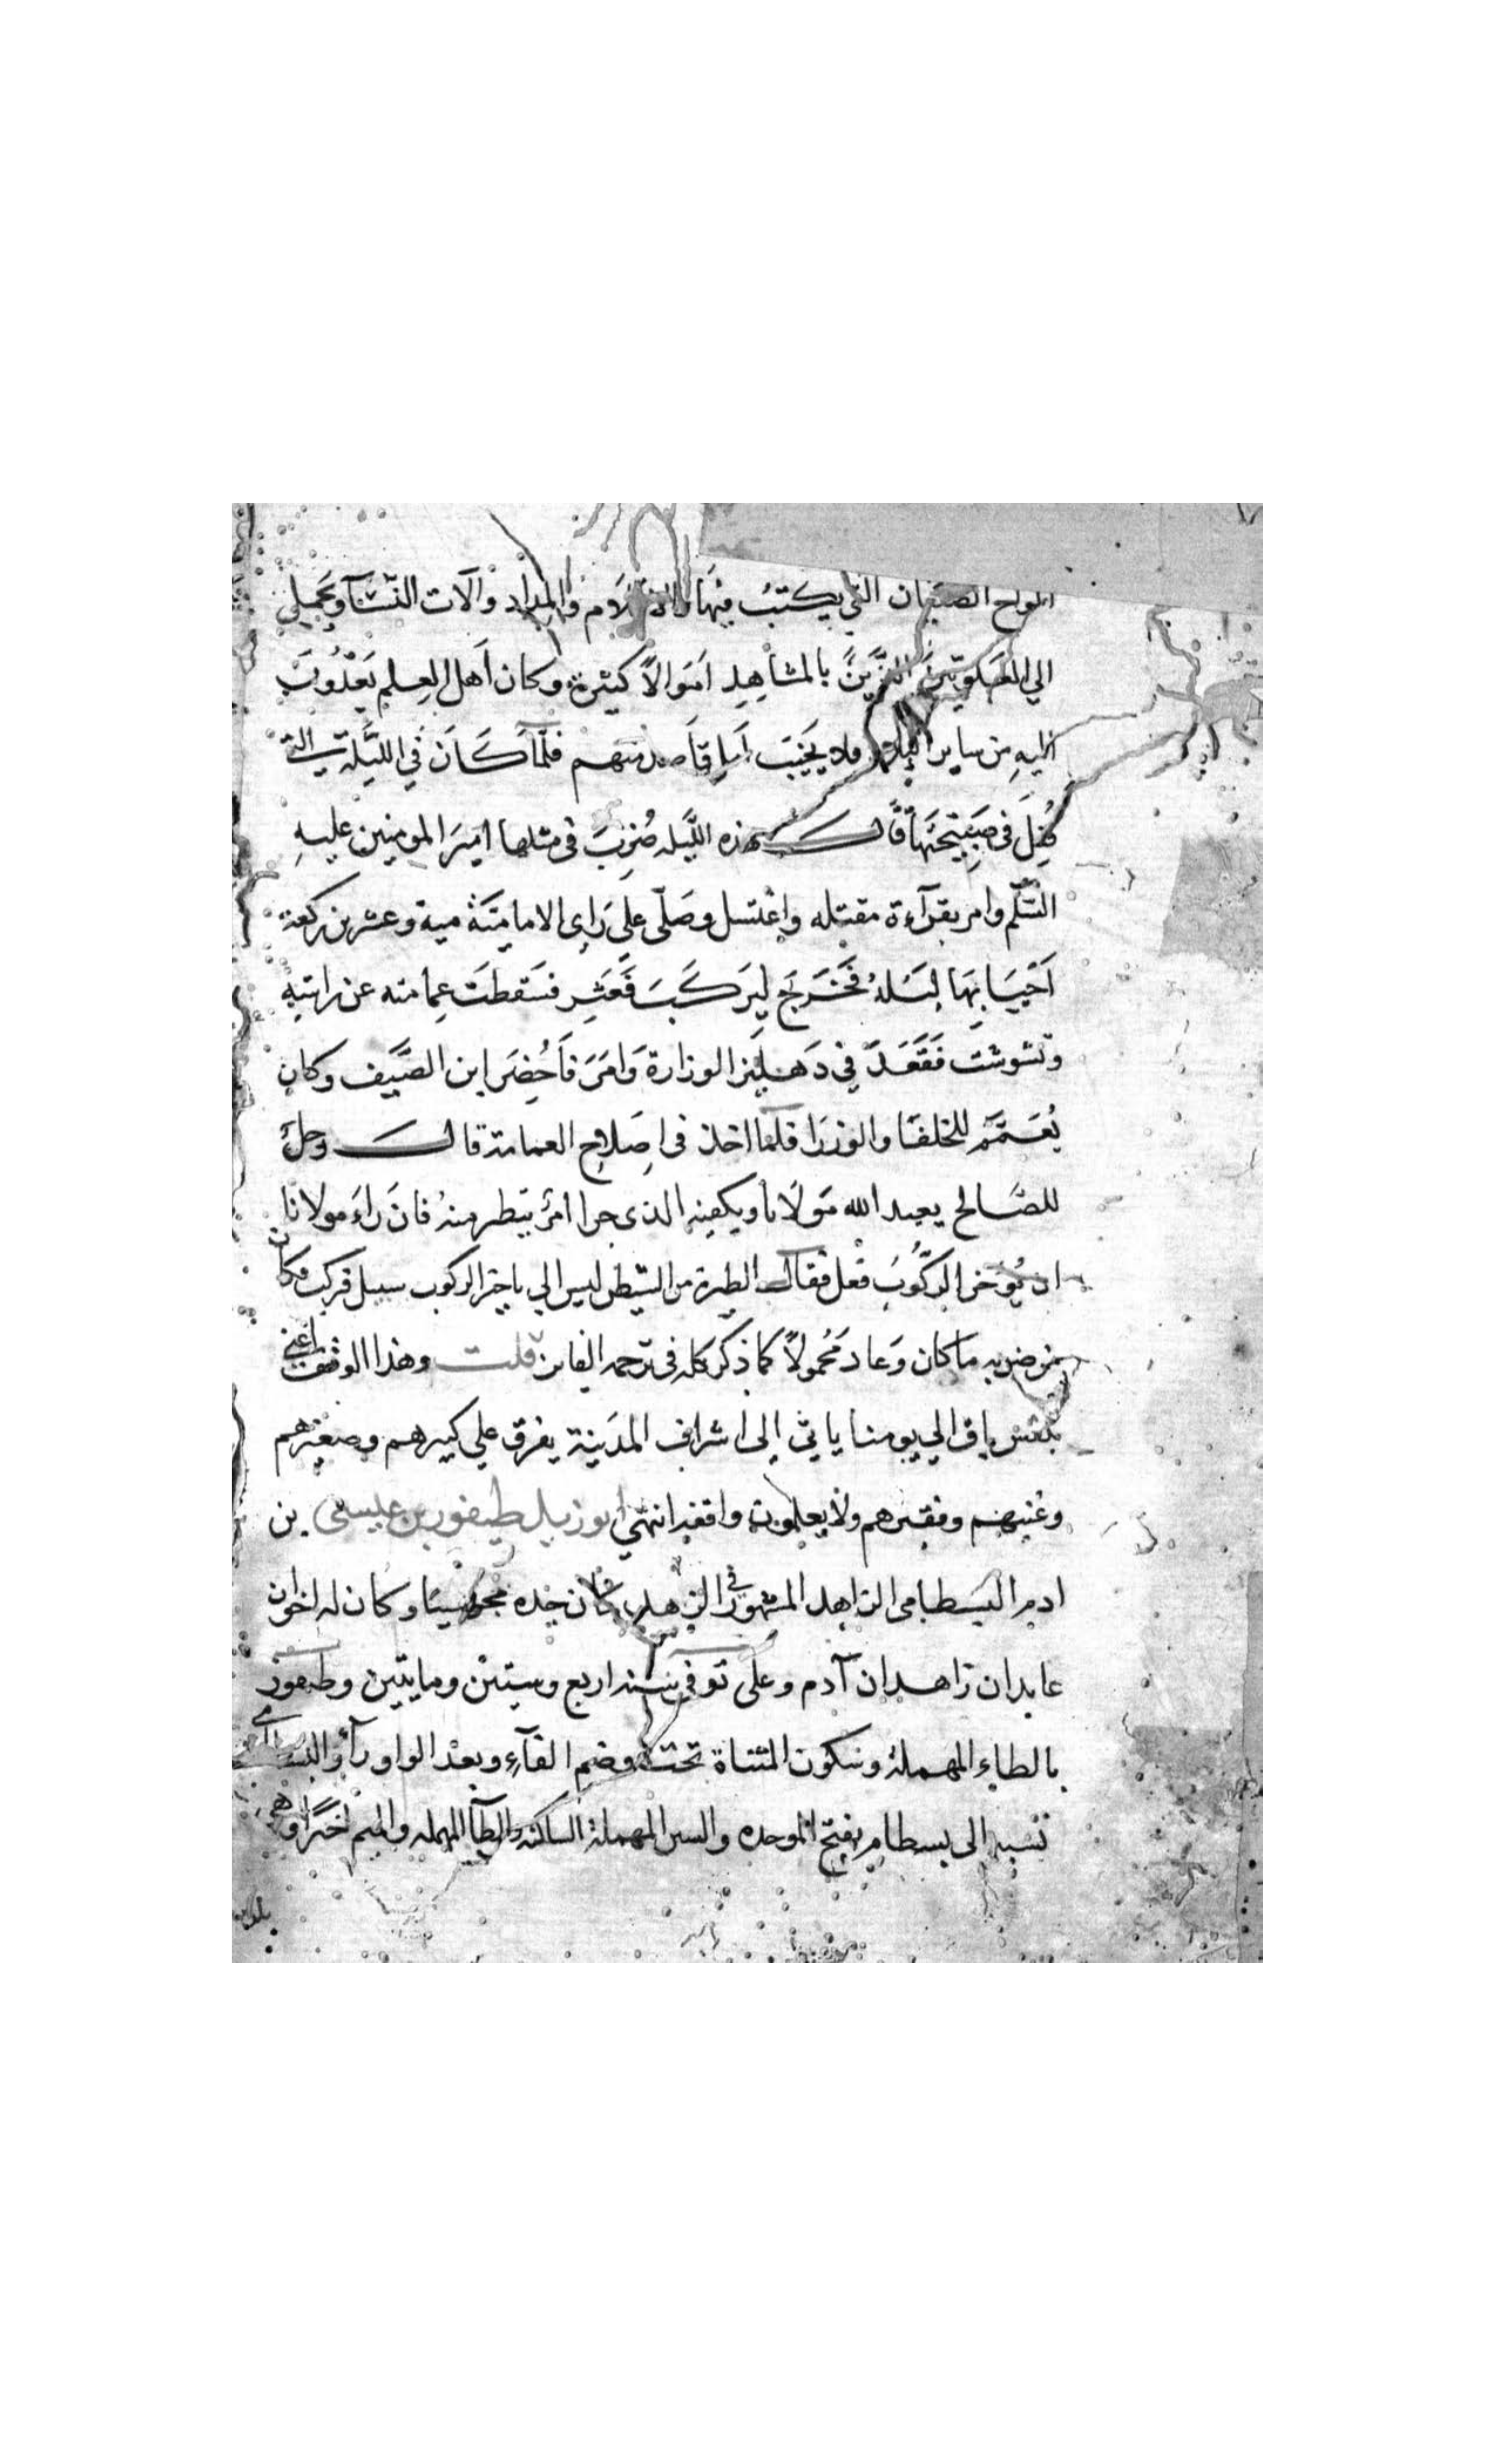 الواح الصبيان التي يكتب فيها والاقلام والمداد وآلات النشآ ويحمل
الي العلويين الذين بالمشاهد اموالاً كثيرة وكان اهل العلم يفدون
اليه من ساير البلاد فلا يخيب امل قاصد منهم فلما كان في الليلة التي
قتل في صبيحتها قال هذه الليله ضرب في مثلها امير المومنين عليه
السّلم وامر بقرآءة مقتله واغتسل وصلّى علي راي الامامية مية وعشرين ركعة
احيا بها ليله فخرج ليركب فعثر فسقطت عمامته عن راسه
وتشوشت فقعد في دهليز الوزارة وامر فاحضر ابن الضيف وكان
يعمّم للخلفا والوزرا فلما اخذ في اصلاح العمامة قال رجل
للصالح يعيد الله مولانا ويكفيه الذى جرا امر يتطير منه فان راى مولانا
ان يؤخر الركوب فعل فقال الطيرة من الشيطن ليس الي تاخير الركوب سبيل فركب فكان
من ضربه ما كان وعاد محمولاً كما ذكر كله في ترجمه الفايز قلت وهذا الوقف اعني
بلقس باق الي يومنا ياتي الى اشراف المدينة يفرق علي كبيرهم وصغيرهم
وغنيهم وفقيرهم ولا يعلمون واقفه انتهي ابو زيد طيفور بن عيسى بن
ادم البسطامى الزاهد المشهور في الزهد كان جده مجوسيا وكان له اخوان
عابدان زاهدان آدم وعلى توفي سنه اربع وستين ومايتين وطيفور
بالطاء المهملة وسكون المثناة تحت وضم الفآء وبعد الواو رآ والبسطامي
نسبه الى بسطام بفتح الموحده والسين المهملة الساكنه والطآ المهمله والميم اخرًا وهي